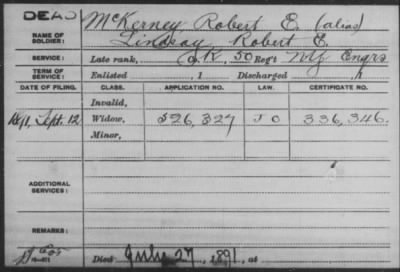 DEAD
McKerney Robert E. (alias)
NAME OF SOLDIER: Lindsay, Robert E.
SERVICE: Late rank, Co. K, 50 Reg't N.Y. Engrs
TERM OF SERVICE: Enlisted , 1 Discharged , 1
DATE OF FILING. CLASS. APPLICATION NO. LAW. CERTIFICATE NO.
Invalid,
1891, Sept. 12 Widow, 526,327 J O 336,346.
Minor,
ADDITIONAL SERVICES:
REMARKS:
Died July 27, 1891, at